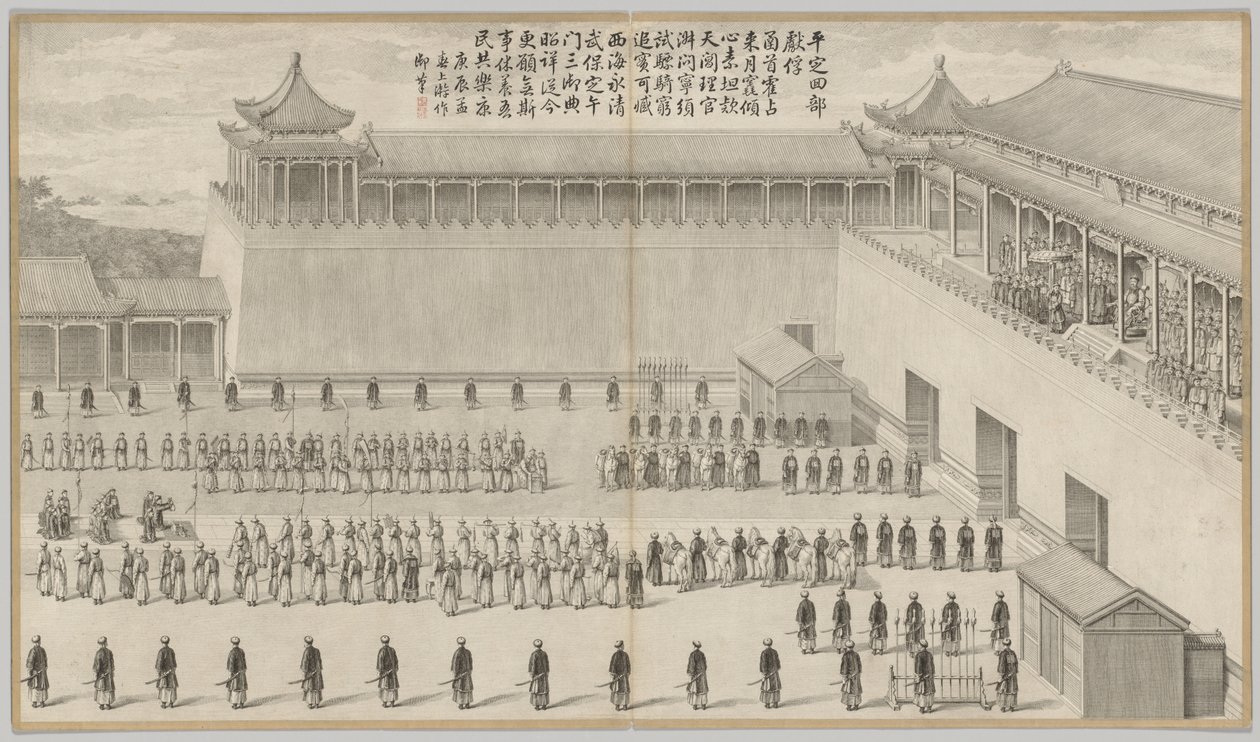 平定回部
獻俘
函首霍占
来月竁傾
心素坦款
天閶理官
淑问寧須
試驃騎窮
追實可臧
西海永清
武保定午
门三御典
昭詳從今
更願無斯
事休養吾
民共樂康
庚辰孟
春上澣作
御筆